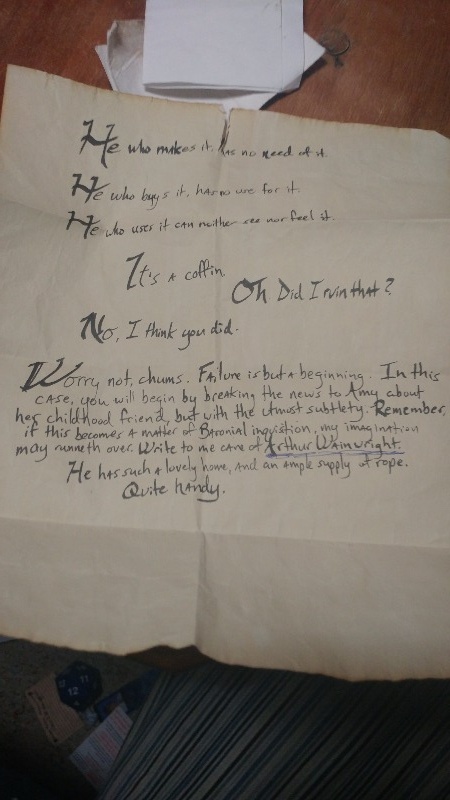 He who makes it, has no need of it.
He who buys it, has no use for it.
He who uses it can neither see nor feel it.
It's a coffin.
Oh Did I ruin that?
No, I think you did.
Worry not, chums. Failure is but a beginning. In this
case, you will begin by breaking the news to Amy about
her childhood friend, but with the utmost subtlety. Remember,
if this becomes a matter of Baronial inquistion, my imagination
may runneth over. Write to me care of Arthur Wainwright.
He has such a lovely home, and an ample supply of rope.
Quite handy.
12